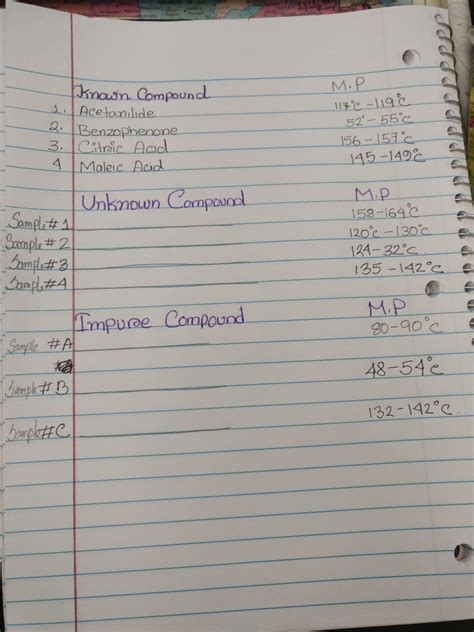 Known Compound M.P
1. Acetanilide 117°c-119°c
2. Benzophenone 52-55°c
3. Citric Acid 156-157°c
4 Maleic Acid 145-149°c
Unknown Compound M.P
Sample#1 158-164°c
Sample#2 120°c-130°c
Sample#3 124-32°c
Sample#4 135-142°c
Impure Compound M.P
Sample #A 80-90°c
Sample#B 48-54°c
Sample#C 132-142°c